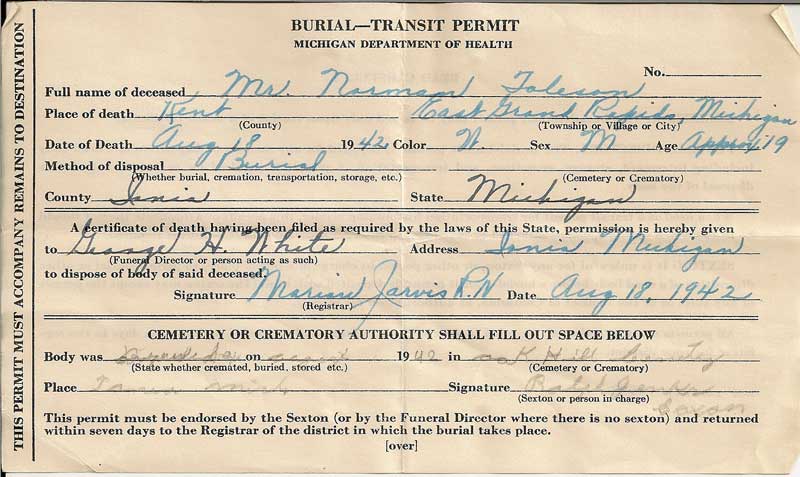 BURIAL—TRANSIT PERMIT
MICHIGAN DEPARTMENT OF HEALTH
THIS PERMIT MUST ACCOMPANY REMAINS TO DESTINATION
No.
Full name of deceased Mr. Norman Toleson
Place of death Kent East Grand Rapids, Michigan
(County) (Township or Village or City)
Date of Death Aug 18 1942 Color W. Sex M Age Approx. 19
Method of disposal Burial
(Whether burial, cremation, transportation, storage, etc.) (Cemetery or Crematory)
County Ionia State Michigan
A certificate of death having been filed as required by the laws of this State, permission is hereby given
to George H. White Address Ionia Michigan
(Funeral Director or person acting as such)
to dispose of body of said deceased.
Signature Marian Jarvis R.N Date Aug 18, 1942
(Registrar)
CEMETERY OR CREMATORY AUTHORITY SHALL FILL OUT SPACE BELOW
Body was on 1942 in Hill
(State whether cremated, buried, stored etc.) (Cemetery or Crematory)
Place Ionia Mich Signature
(Sexton or person in charge)
This permit must be endorsed by the Sexton (or by the Funeral Director where there is no sexton) and returned
within seven days to the Registrar of the district in which the burial takes place.
[over]